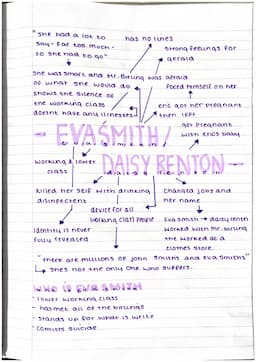 "she had a lot to
say - far too much -
so she had to go"
has no lines
strong feelings for
gerald
She was smart and Mr. Birling was afraid
of what she would do
shows the silence of
the working class
doesnt have any
forced himself on her
eric got her pregnant
then left
- EVA SMITH/
DAISY RENTON -
got pregnant
with erics baby
working & lower
class
killed her self with drinking
disinfectent
device for all
working class people
changed jobs and
her name
Identity is never
fully revealed
Eva smith → daisy renton
worked with Mr. birling
the worked at a
clothes store.
"there are millions of john smiths and eva smiths"
↳ shes not the only one who suffers.
WHO IS EVA SMITH
- lower working class
- has met all of the birlings
- stands up for what is write
- comitts suicide